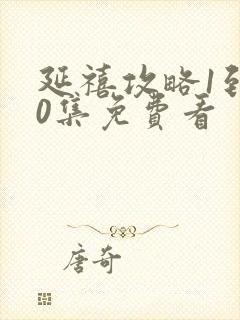 延禧攻略1到
0集免費看
唐奇